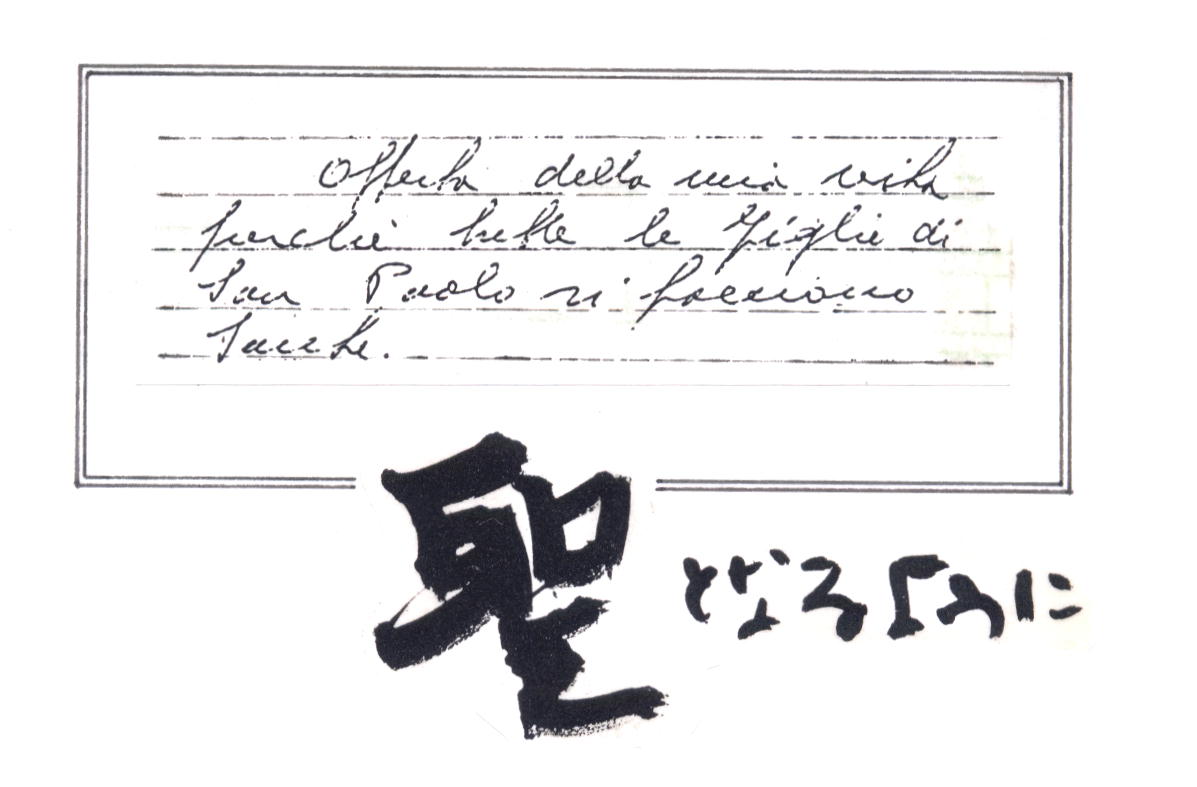 Offerta della mia vita
perchè tutte le Figlie di
San Paolo si facciano
Sante.
聖となるように